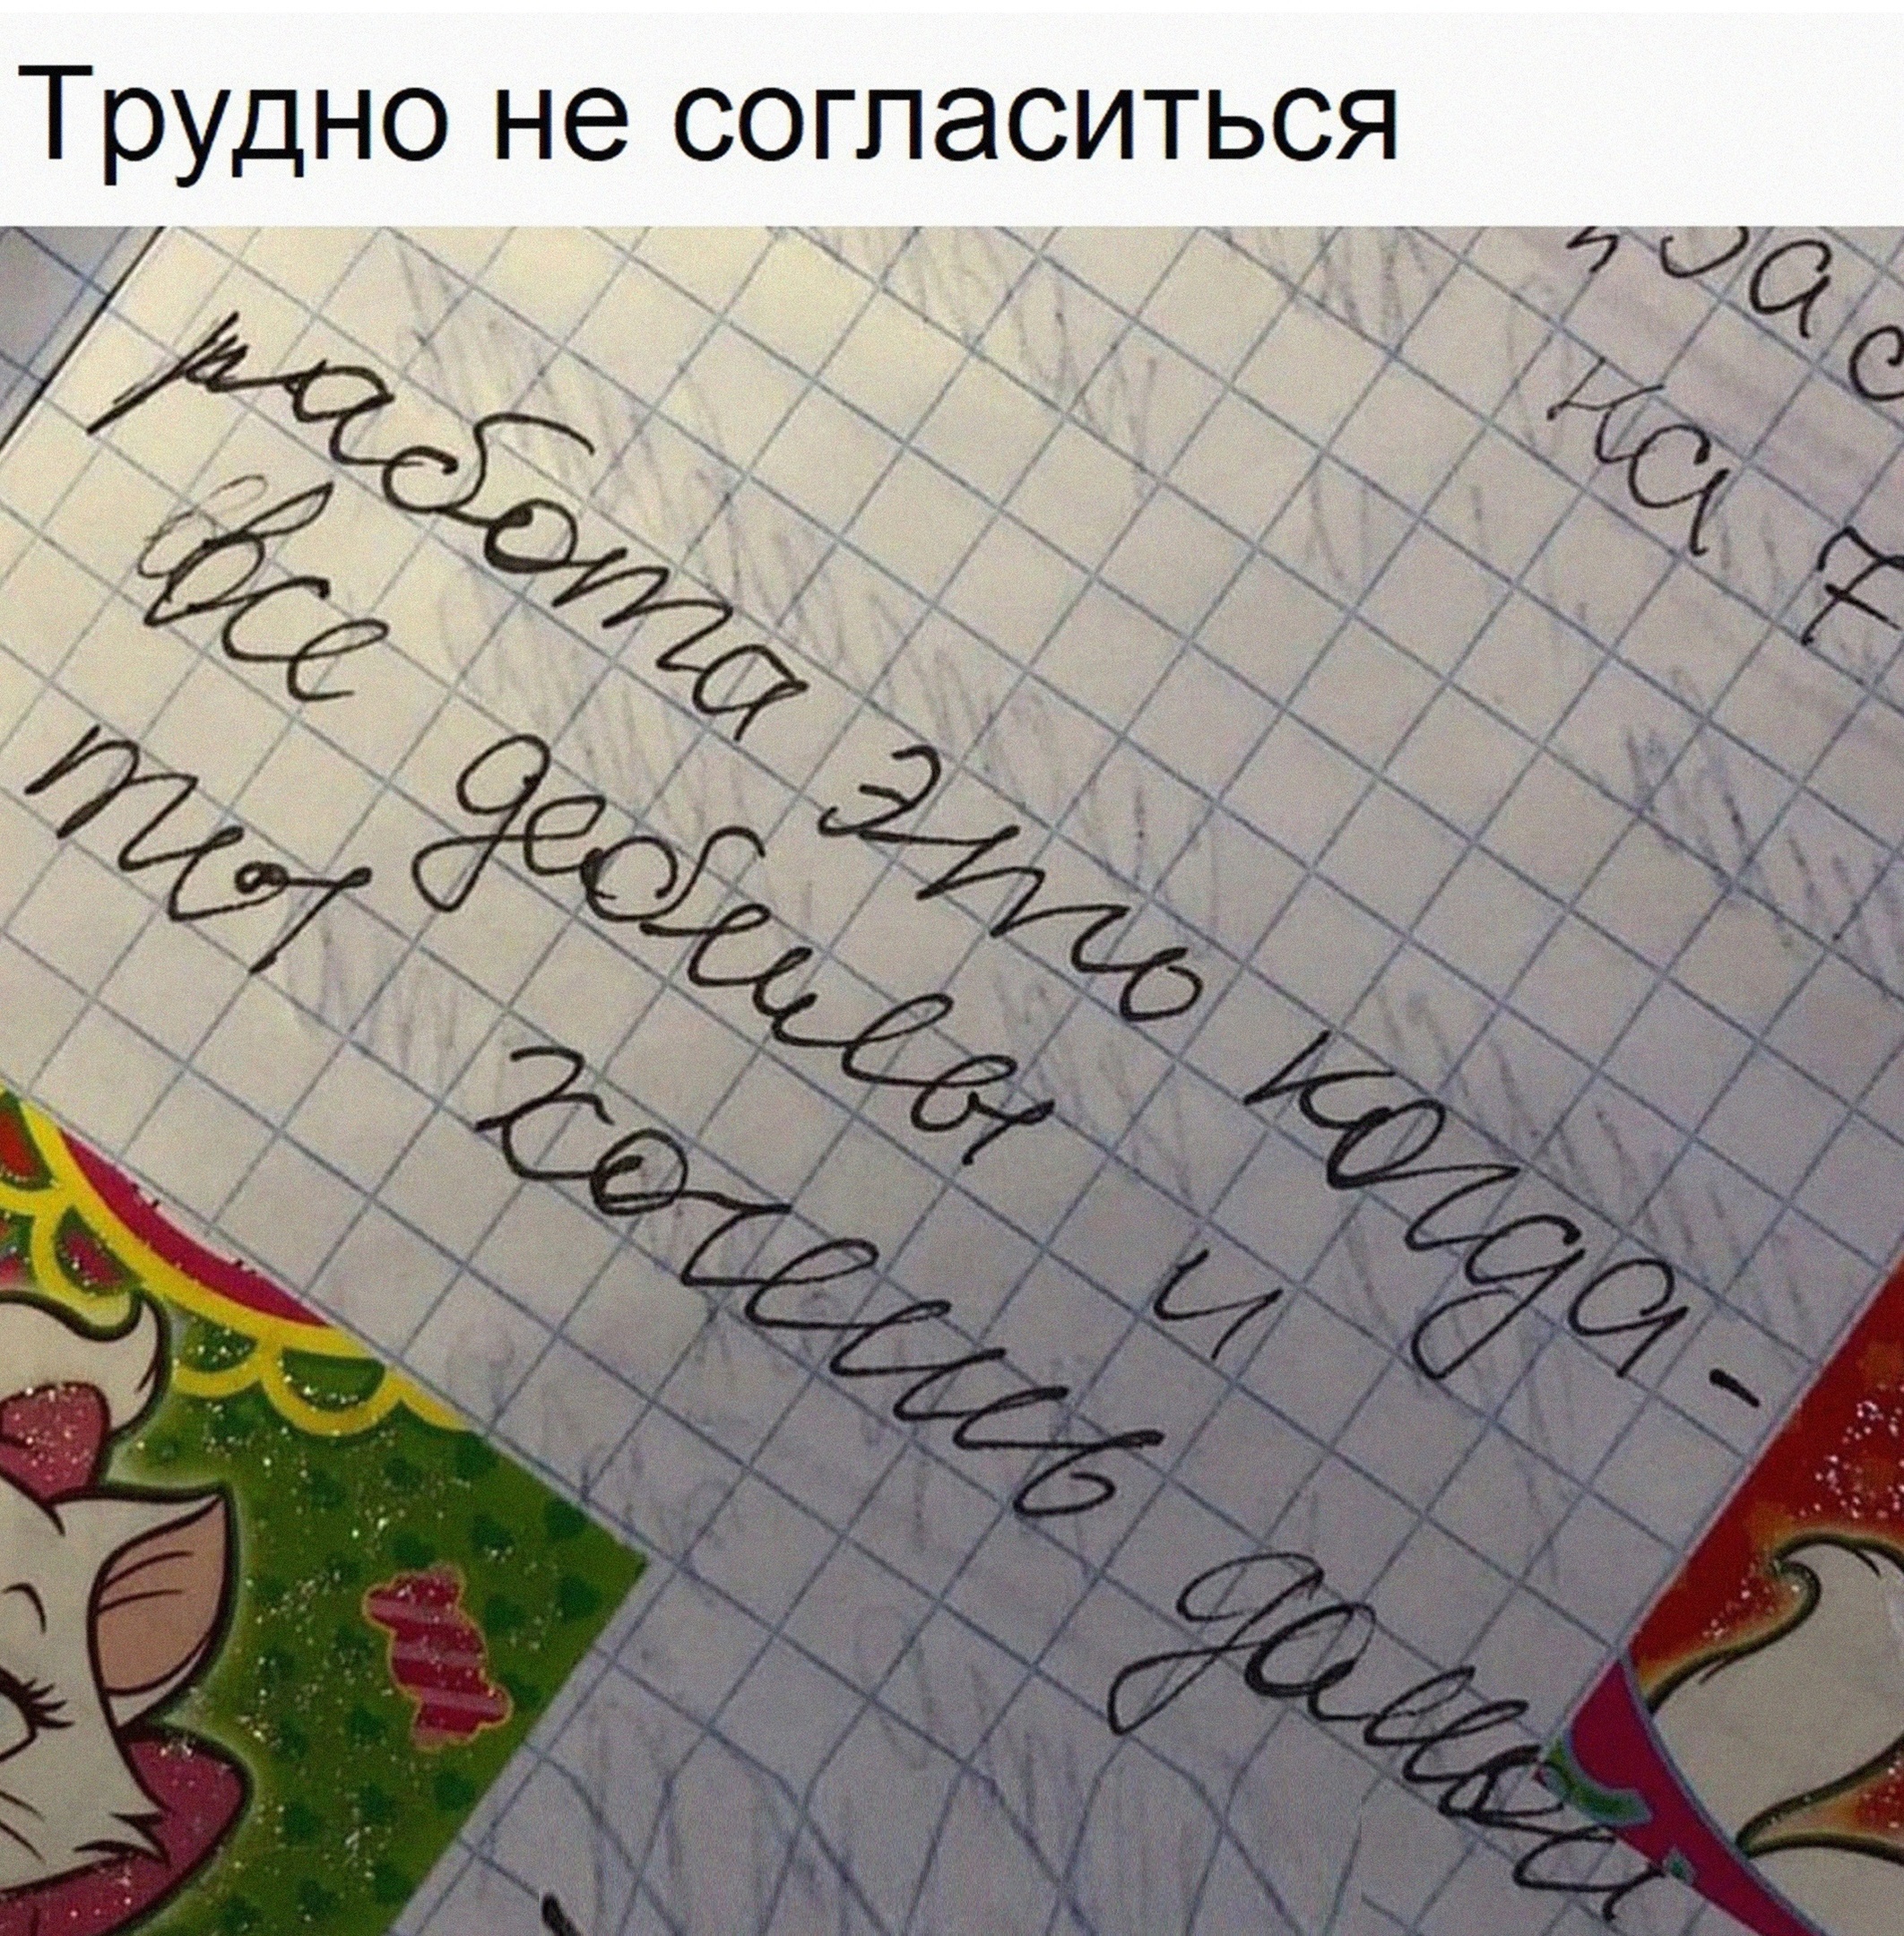 Трудно не согласиться
на 7
работа это когда-
все дебилы и
ты хочешь домой